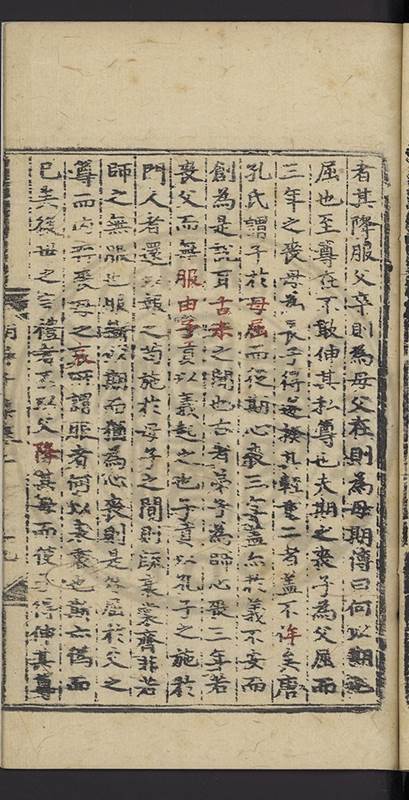 者其降服父卒則為母父在則為母期傳曰何以期也
屈也至尊在不敢伸其私尊也夫期之喪子為父屈而
三年之喪母為長子得遂挨其輕重二者盖不侔矣唐
孔氏謂子於母屈而從期心喪三年盖亦於義不安而
創為是說耳古未之聞也古者弟子為師心喪三年若
喪父而無服由子貢以義起之也子貢以孔子之施於
門人者還以報之苟施於母子之間則疏衰裳齊非若
師之無服也服斷以期而猶為心喪則是外屈於父之
尊而內弄喪母之哀所謂服者何以表衷也期六偽而
已矣後世之言禮者至以父降其母而使子得伸其尊